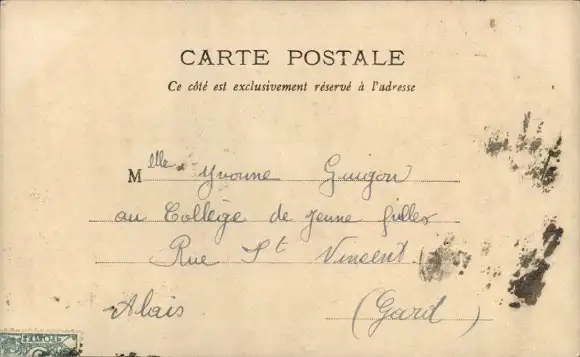 CARTE POSTALE
Ce côté est exclusivement réservé à l'adresse
Melle Yvonne Guigou
au Collège de jeune filles
Rue St Vincent
Alais (Gard)